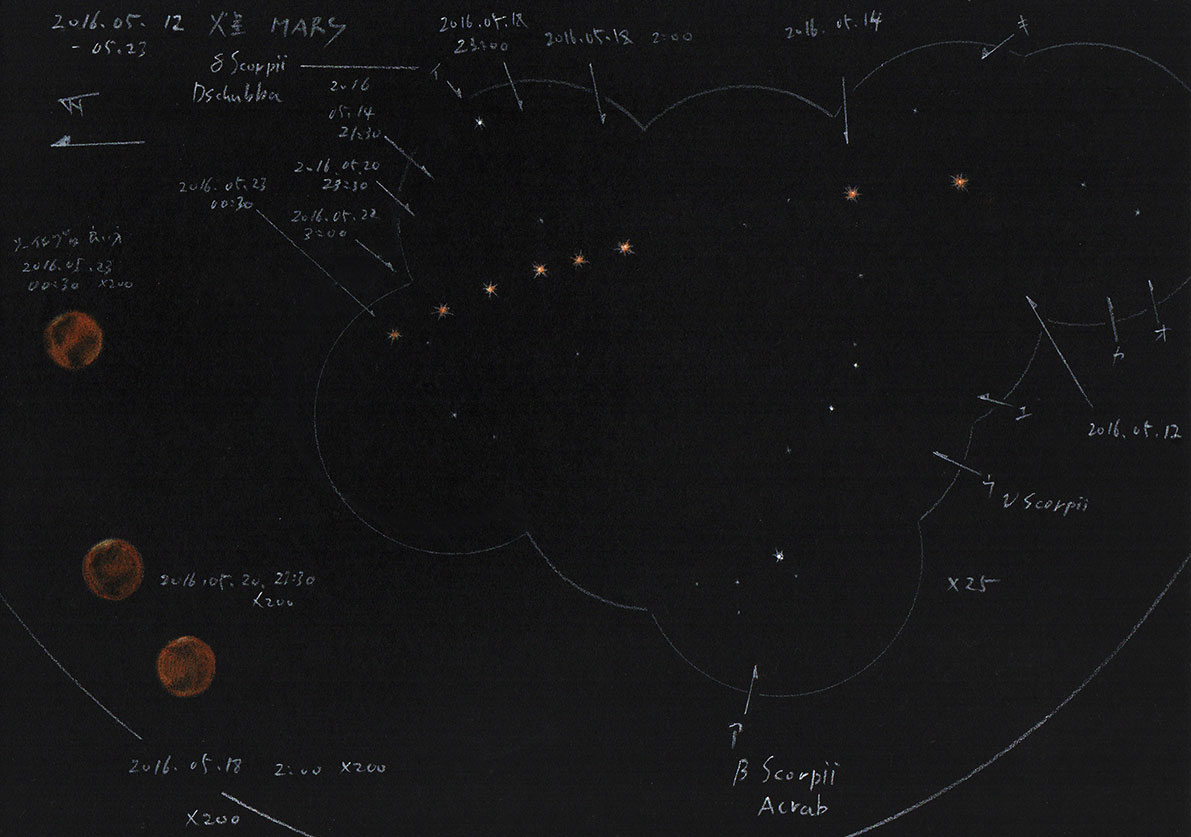 2016.05.12 火星 MARS
- 05.23
N
δ Scorpii
Dschubba
イ
2016.05.18
23:00
2016.05.18 2:00
2016.05.14
キ
2016
05.19
21:30
2016.05.20
23:30
2016.05.22
3:00
2016.05.23
00:30
シーイングは良い方
2016.05.23
00:30 ×200
カ
オ
エ
2016.05.12
ウ
ν Scorpii
×25
2016.05.20. 23:30
×200
ア
β Scorpii
Acrab
2016.05.18 2:00 ×200
×200